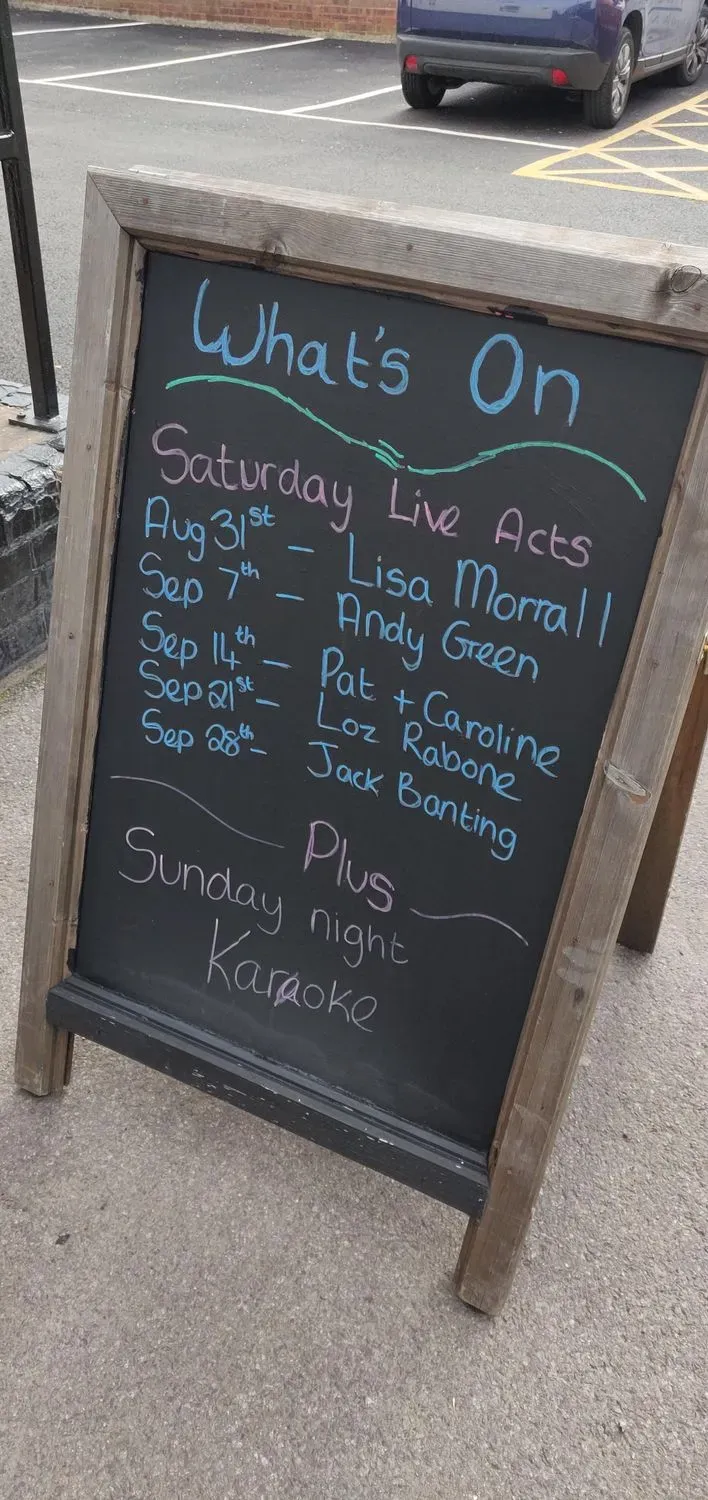 What's On
Saturday Live Acts
Aug 31st - Lisa Morrall
Sep 7th - Andy Green
Sep 14th - Pat + Caroline
Sep 21st - Loz Rabone
Sep 28th - Jack Banting
Plus
Sunday night
Karaoke